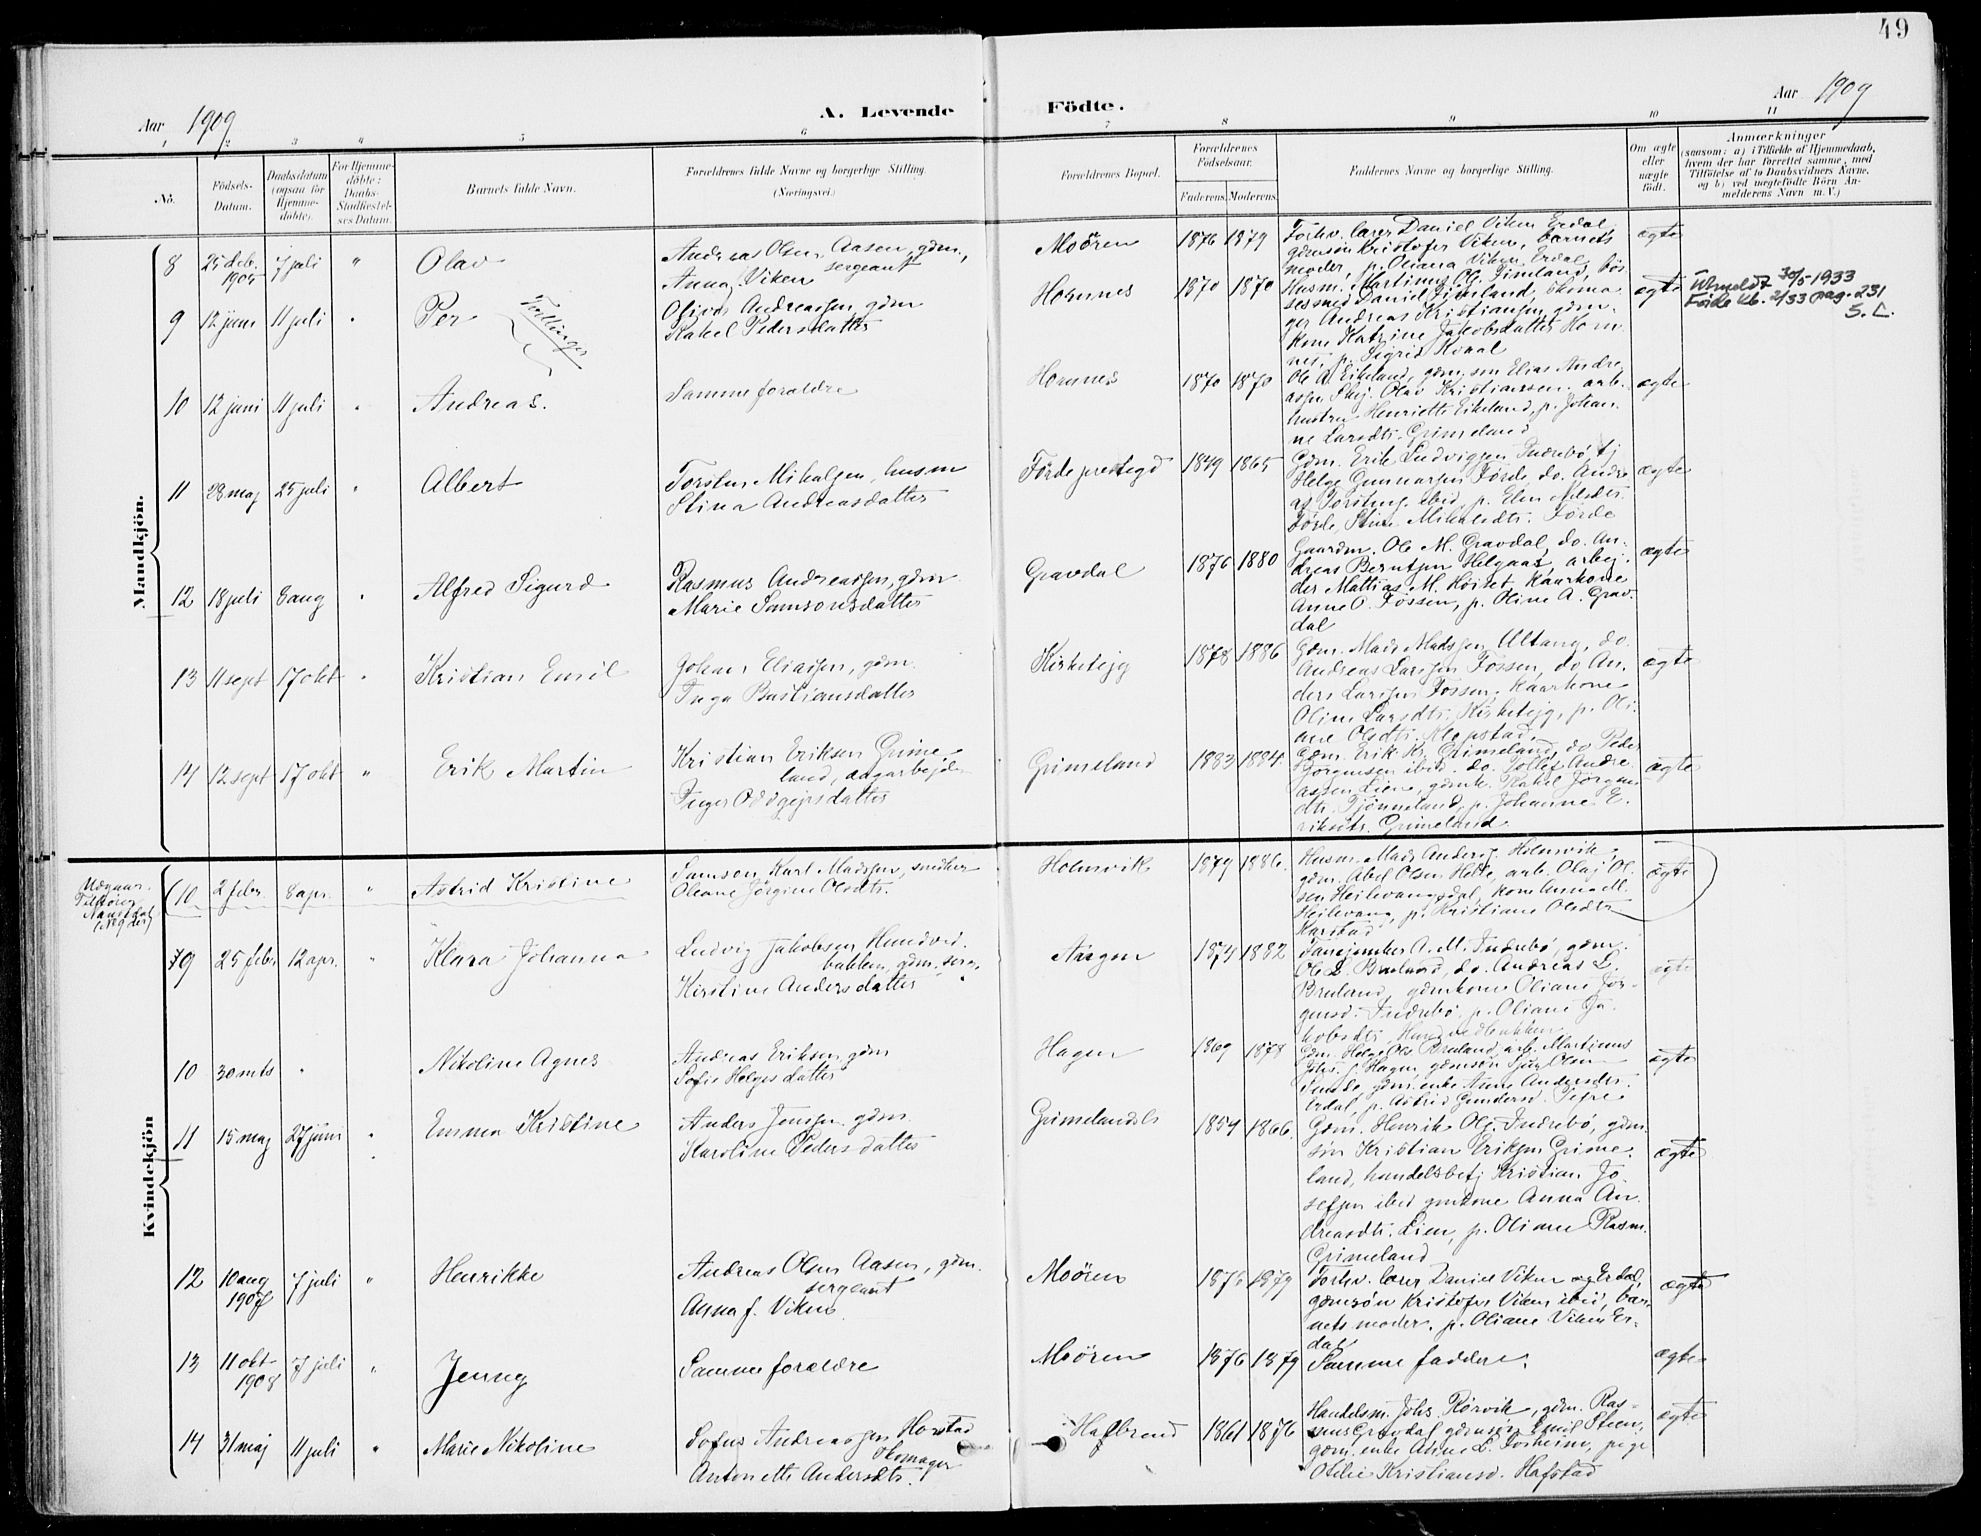 49
Aar 1909
A. Levende Födte.
Aar 1909
1 2 3 4 5 6 7 8 9 10 11
No.
Födsels-Datum.
Daabsdatum (ogsaa for Hjemme-döbte).
For Hjemme-döbte: Daabs-Stadfæstel-ses Datum.
Barnets fulde Navn.
Forældrenes fulde Navne og borgerlige Stilling. (Næringsvei.)
Forældrenes Bopæl.
Forældrenes Födselsaar.
Faderens. Moderens.
Faddernes Navne og borgerlige Stilling.
Om ægte eller uægte födt.
Anmærkninger
(saasom: a) i Tilfælde af Hjemmedaab, hvem der har forrettet samme, med Tilföielse af to Daabsvidners Navne, og b) ved uægtefödte Börn An-melderens Navn m. V.)
Mandkjön.
8 25 deb. 7 juli " Olav
Andreas Olsen Aasen, gdm., sergeant
Anna Viken
Moören 1876 1879
Forhv. lærer Daniel Viken Erdal,
gdmsön Kristofer Viken, barnets
moder, p. Oliana Viken Erdal
ægte
9 12 juni 11 juli " Per
Tvillinger
Andreassen gdm
Rakel Pedersdatter
Hornnes 1870 1870
Husm. Martinus Ol.
Daniel
ger Andreas Kristiansen, gdm.
kone Katrine Jakobsdatter Horn-
nes, p. Sigrid Kvaal
ægte
Utmeldt 30/5 1933
Förde kb. 2/33 pag. 231
S. L.
10 12 juni 11 juli " Andreas.
Samme forældre
Hornnes 1870 1870
Ole A. Eikeland, gdm. sön Elias Andre
assen Olav Kristianssen, arb.
hustru Henriette Eikeland, p. Johan-
ne Larsdtr. Grimeland
ægte
11 28 maj 25 juli " Albert
Torsten Mikalsen, husm
Stina Andreasdatter
Förde prestegd 1879 1865
Gdm. Erik Ludvigsen Indrebö,
Helge Gunnarsen Förde, do. Andre
as ibid, p. Elen
Förde, Stine Mikalsdtr. Förde
ægte
12 18 juli 8 aug " Alfred Sigurd
Rasmus Andreassen, gdm
Marie Samsonsdatter
Gravdal 1876 1880
Gaardm. Ole M. Gravdal, do. An-
dreas Berntsen Helgaas, arbej-
der Mattias M. kaarkone
Anne O. Fossen, p. Oline A. Grav-
dal
ægte
13 11 sept 17 okt " Kristian Emil
Johan Eliassen, gdm.
Inga Bastiansdatter
Kirketejg 1878 1886
Gdm. Mads Madssen Ultang, do.
Andreas Larssen Fossen, do An-
ders Larssen Fossen, kaarkone
Oline Larsdtr. Kirketejg, p. Oli-
ane Olsdtr. Klopstad.
ægte
14 12 sept 17 okt " Erik Martin
Kristian Eriksen Grime-
land, dagarbejder
Inger Oddgejrsdatter
Grimeland 1883 1884
Gdm. Erik Kr. Grimeland, do Peder
Jörgensen ibid. do. Tollef Andre
assen Lien, gdmk. Rakel Jörgens
dtr. Tjönneland, p. Johanne E-
riksdtr. Grimeland
ægte
Kvindekjön
Udgaar.
Tilhörer
Naustdal
10 2 febr. 8 apr. " Astrid Kristine
Samson Karl Madssen, snedker
Oleane Jörgine Olsdtr.
Holmvik 1879 1886.
Husm. Mads Anders. Holmvik,
gdm. Abel Olsen Helle, arb. Olaj Ol-
sen Hejlevangsdal, kone Anna M.
Hejlevang, p. Kristiane Olsdtr
Karstad
ægte
9 25 febr 12 apr. " Klara Johanna
Ludvig Jakobsen Hundved-
bakken, gdm. serg.
Kirstine Andersdatter
Aasen 1874 1882
Fanejunker A. M. Indrebö, gdm.
Ole L. Bruland, do. Andreas L.
Bruland, gdmkone Oliane Jör-
gensd. Indrebö, p. Oliane Ja-
kobsdtr. Hundvedbakken
ægte
10 30 mts " Nikoline Agnes
Andreas Eriksen, gdm
Sofie Helgesdatter
Hagen 1869 1878
Gdm. Helge Ols. Bruland, arb. Martinus
Johs. f. Hagen, gdmsön Sjur Olsen
Sunde, gdm. enke Anne Andersdtr.
Erdal, p. Astrid Gundersd. Tefre
ægte
11 15 maj 27 juni " Emma Kristine
Anders Jonssen gdm
Karoline Pedersdatter
Grimelandsl 1854 1866.
Gdm. Henrik Ols. Indrebö, gdm.
sön Kristian Eriksen Grime-
land, handelsbetj Kristian Jo-
sefsen ibid gmkone Anna An-
dreasdtr. Lien, p. Oliane Rasm.
Grimeland
ægte
12 10 aug 1907 7 juli " Henrikke
Andreas Olsen Aasen, gdm.
sergeant
Anna f. Viken
Moören 1876 1879
Forhv. lærer Daniel Viken Erdal,
gdmsön Kristofer Viken ibid, bar-
nets moder, p. Oliane Viken Er-
dal
ægte
13 11 okt 1908 7 juli " Jenny
Samme forældre
Moören 1876 1879
Samme faddere.
ægte
14 31 maj 11 juli " Marie Nikoline
Sofus Andreassen Horstad
skomager
Antonette Andersdtr.
Hafbrend 1861 1876
Handelsm. Johs. Rörvik, gdm. Ras-
mus Gravdal, gdmsön Emil Steen,
gdm. enke Anne L. Forheim, pige
Otilie Kristiansd. Hafstad
ægte